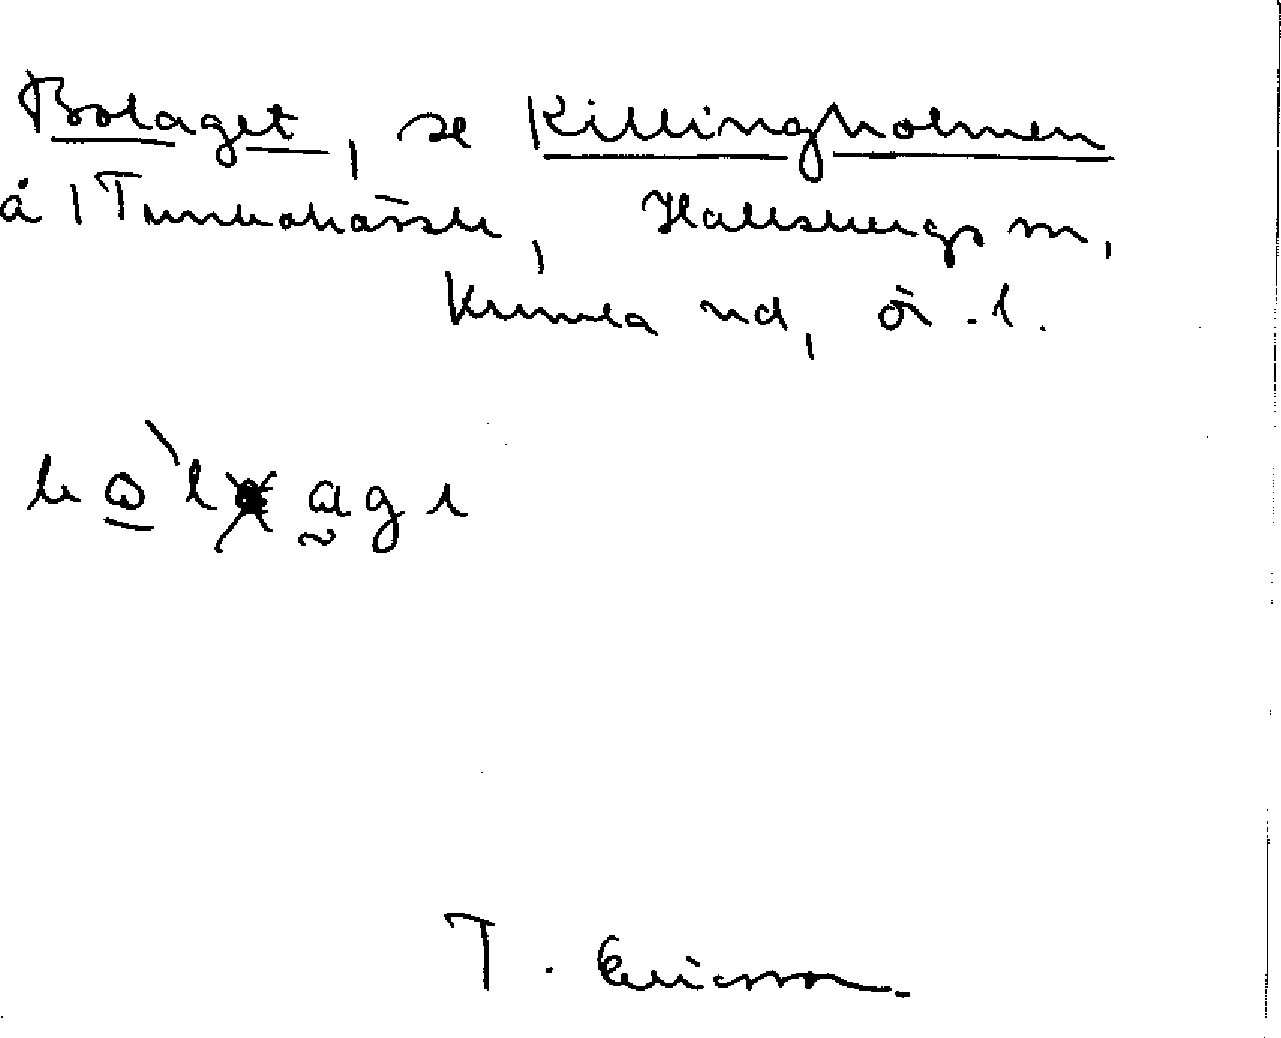 Bolaget, se Killingholmen
å 1 Tunbohässle, Hallsbergs sn,
Kumla hd, ör. l.
bo`lagə
T. Ericsson.